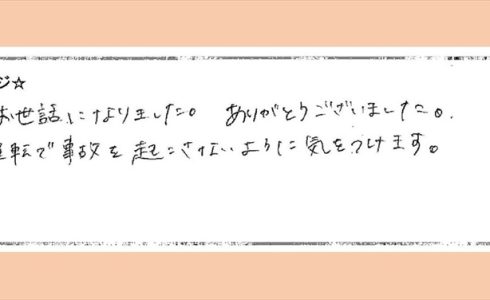 ジ☆
お世話になりました。 ありがとうございました。
運転で事故を起こさないように気をつけます。